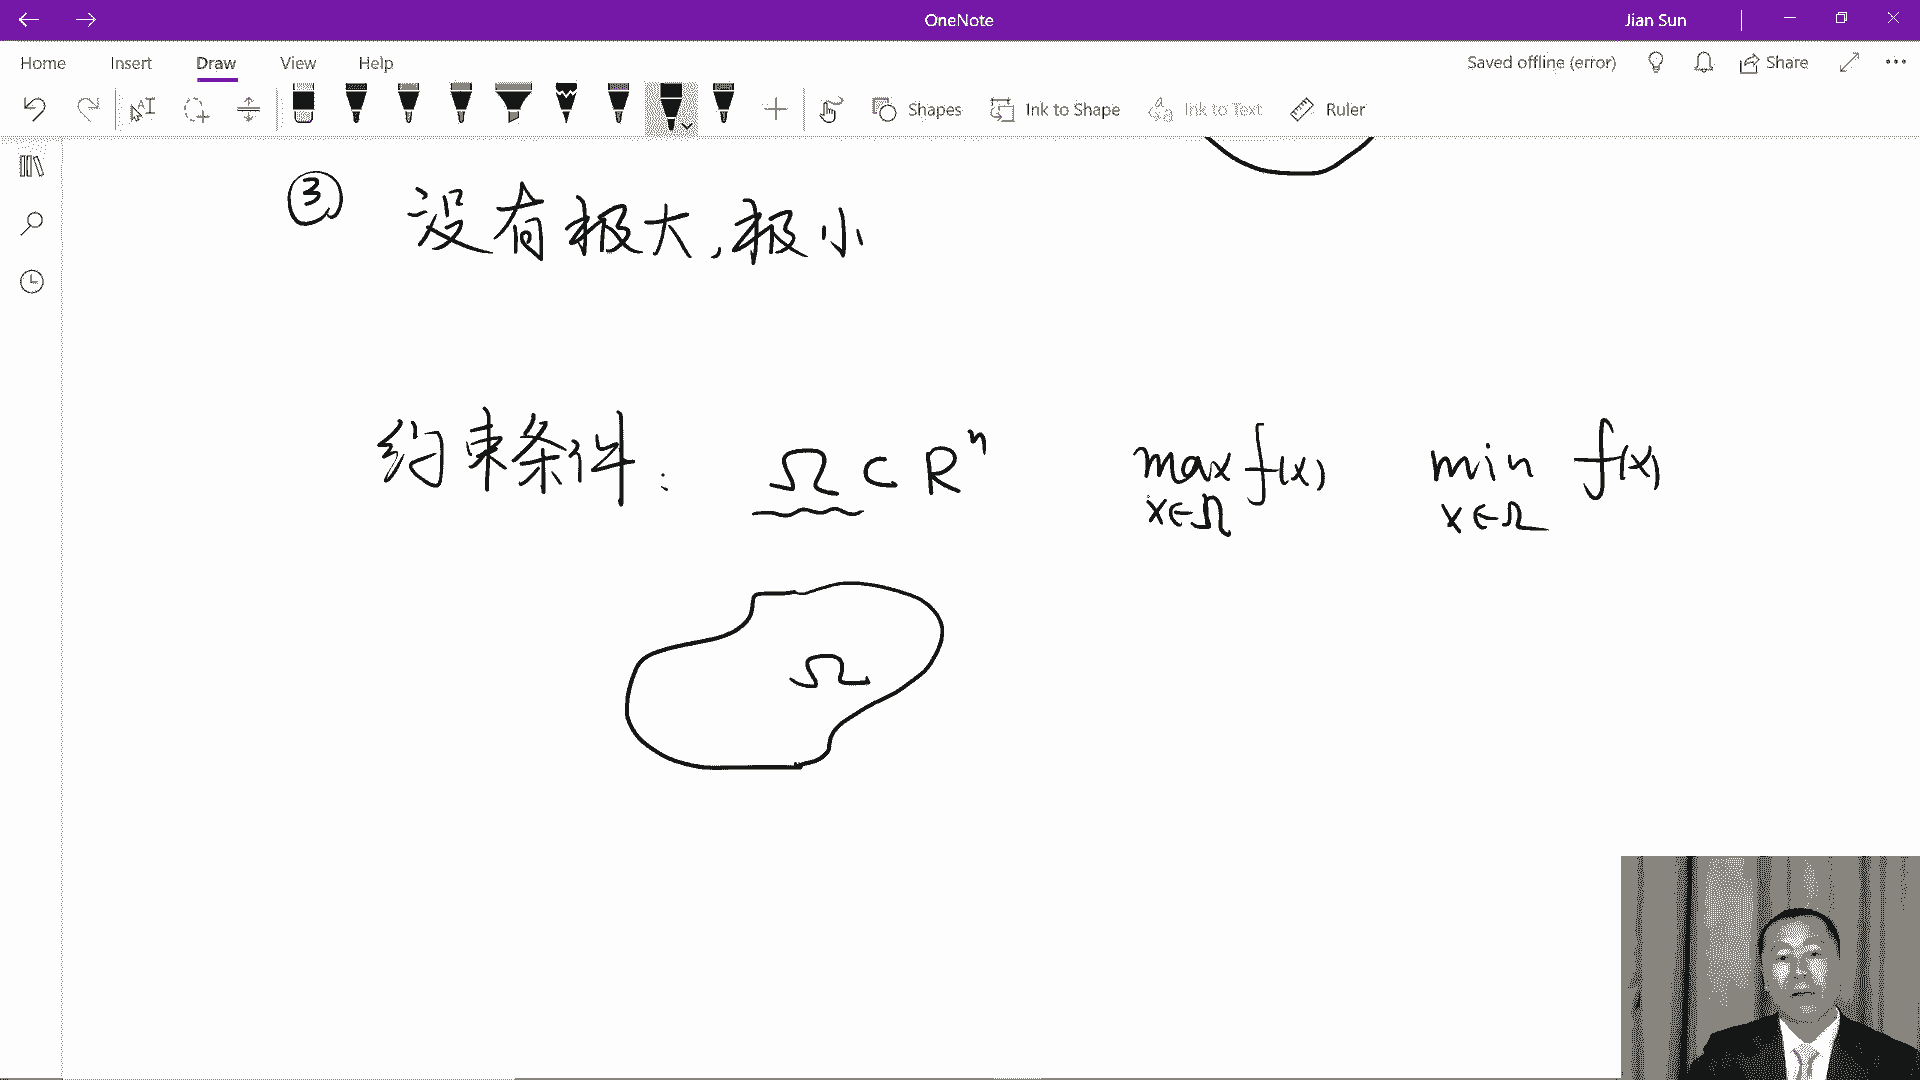 OneNote
Jian Sun
Home Insert Draw View Help
Saved offline (error) Share
Shapes Ink to Shape Ink to Text Ruler
③ 没有极大,极小
约束条件: Ω ⊂ Rⁿ max f(x) min f(x)
x∈Ω x∈Ω
Ω